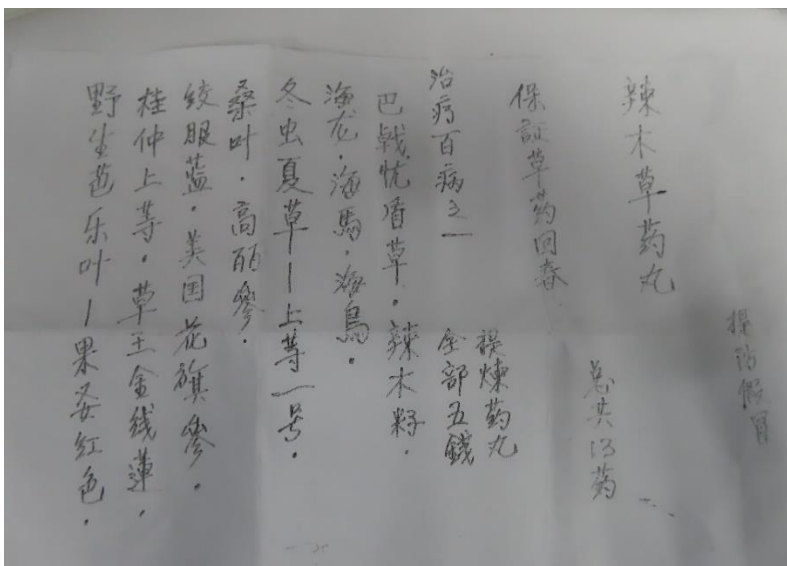 提防假冒
辣木草药丸
总共13药
保証草药回春
提煉药丸
治疗百病之一
全部五錢
巴戟忱盾草·辣木籽·
海龙·海馬·海鳥·
冬虫夏草－上等一号·
桑叶·高丽參·
绞服蓝·美国花旗參·
桂仲上等·草王金线蓮·
野生芭乐叶－果要红色·